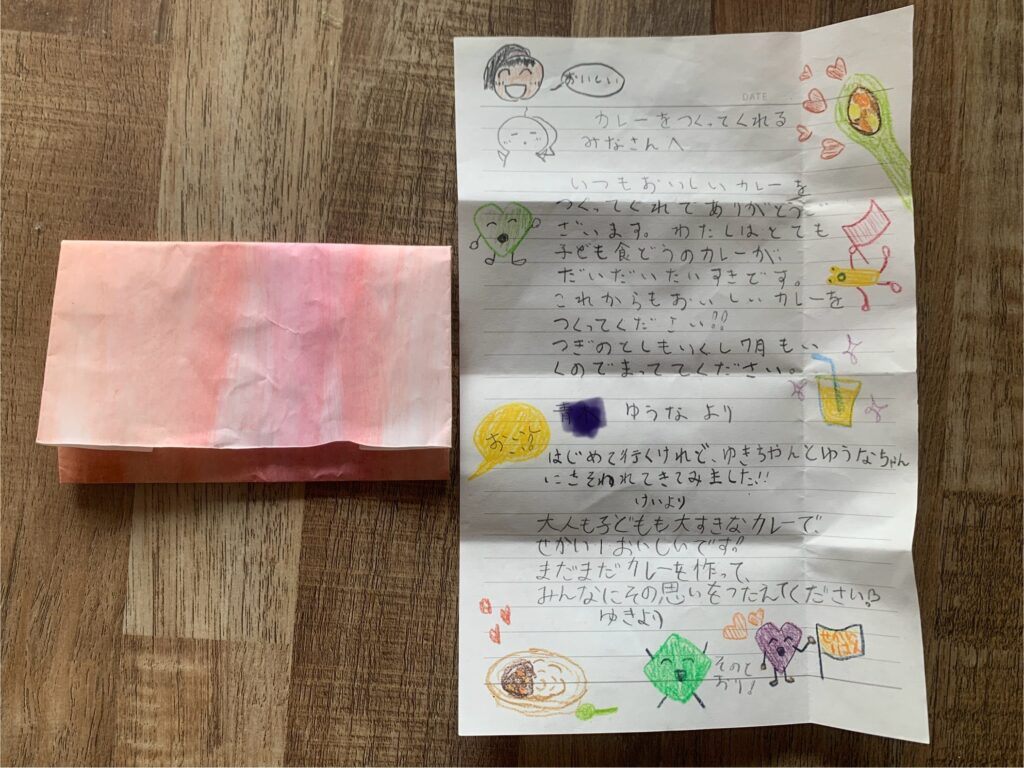 おいしい
DATE
カレーをつくってくれる
みなさんへ
いつもおいしいカレーを
つくってくれてありがとうご
ざいます。わたしはとても
子ども食どうのカレーが
だいだいだいすきです。
これからもおいしいカレーを
つくってください!!
つぎのとしもいくし7月もい
くのでまっててください。
ゆうなより
はじめて行くけれど、ゆきちゃんとゆうなちゃん
にさそわれてきてみました!!
けいより
大人も子どもも大すきなカレーで、
せかい1おいしいです!
まだまだカレーを作って、
みんなにその思いをつたえてください!
ゆきより
そのと
おり!